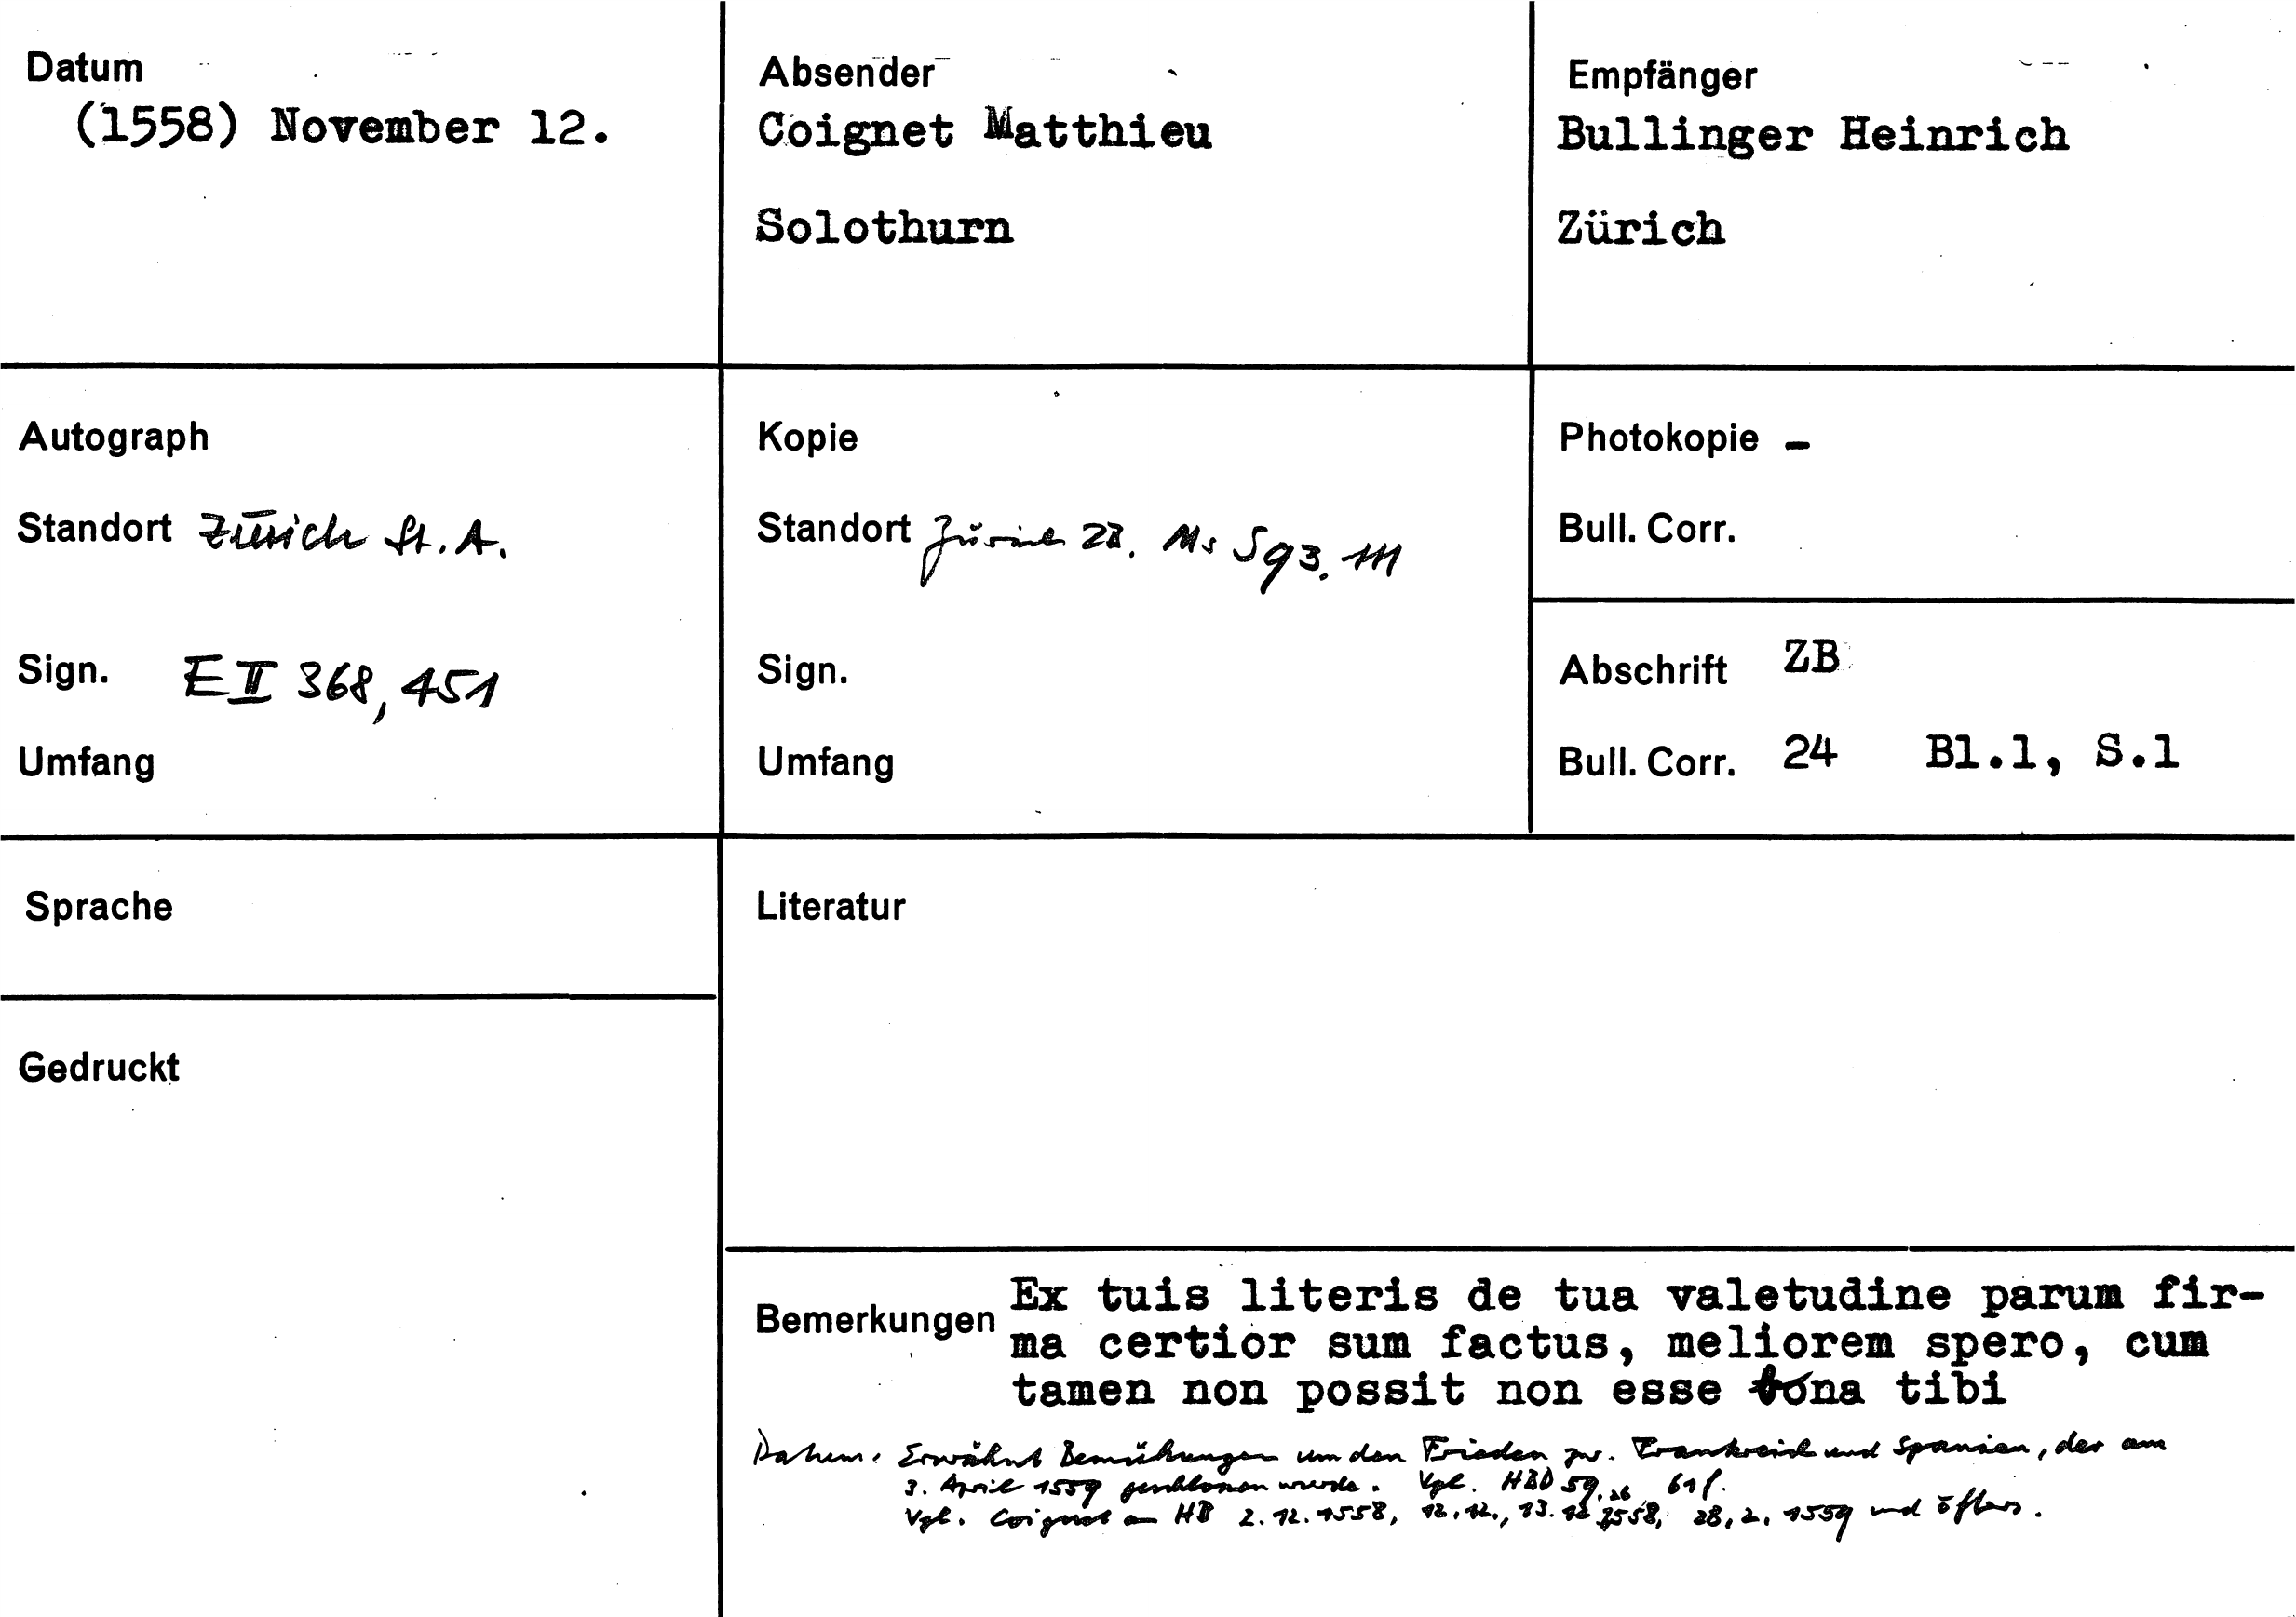 Datum
(1558) November 12.
Absender
Coignet Matthieu
Solothurn
Empfänger
Bullinger Heinrich
Zürich
Autograph
Standort Zürich St. A.
Sign. E II 368, 451
Umfang
Kopie
Standort Zürich ZB. Ms S 93. 111
Sign.
Umfang
Photokopie -
Bull. Corr.
Abschrift ZB
Bull. Corr. 24 Bl.1, S.1
Sprache
Gedruckt
Literatur
Bemerkungen
Ex tuis literis de tua valetudine parum fir-
ma certior sum factus, meliorem spero, cum
tamen non possit non esse bona tibi
Datum: Erwähnt Bemühungen um den Frieden zw. Frankreich und Spanien, der am
3. April 1559 geschlossen wurde. Vgl. HBD 59,26 61f.
Vgl. Coignet an HB 2.12.1558, 12.12., 13.12 1558, 28.2.1559 und öfters.